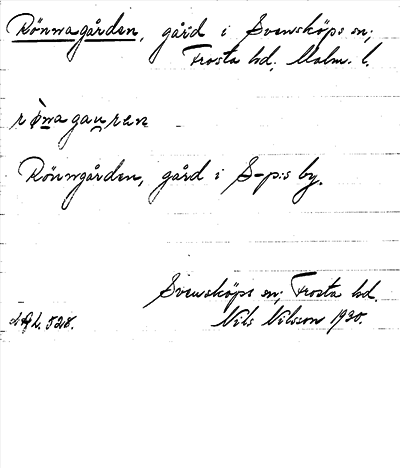 Rönnagården, gård i Svensköps sn,
Frosta hd, Malm. l.
Rönngården, gård i S-p:s by.
Svensköps sn, Frosta hd.
Nils Nilsson 1930.